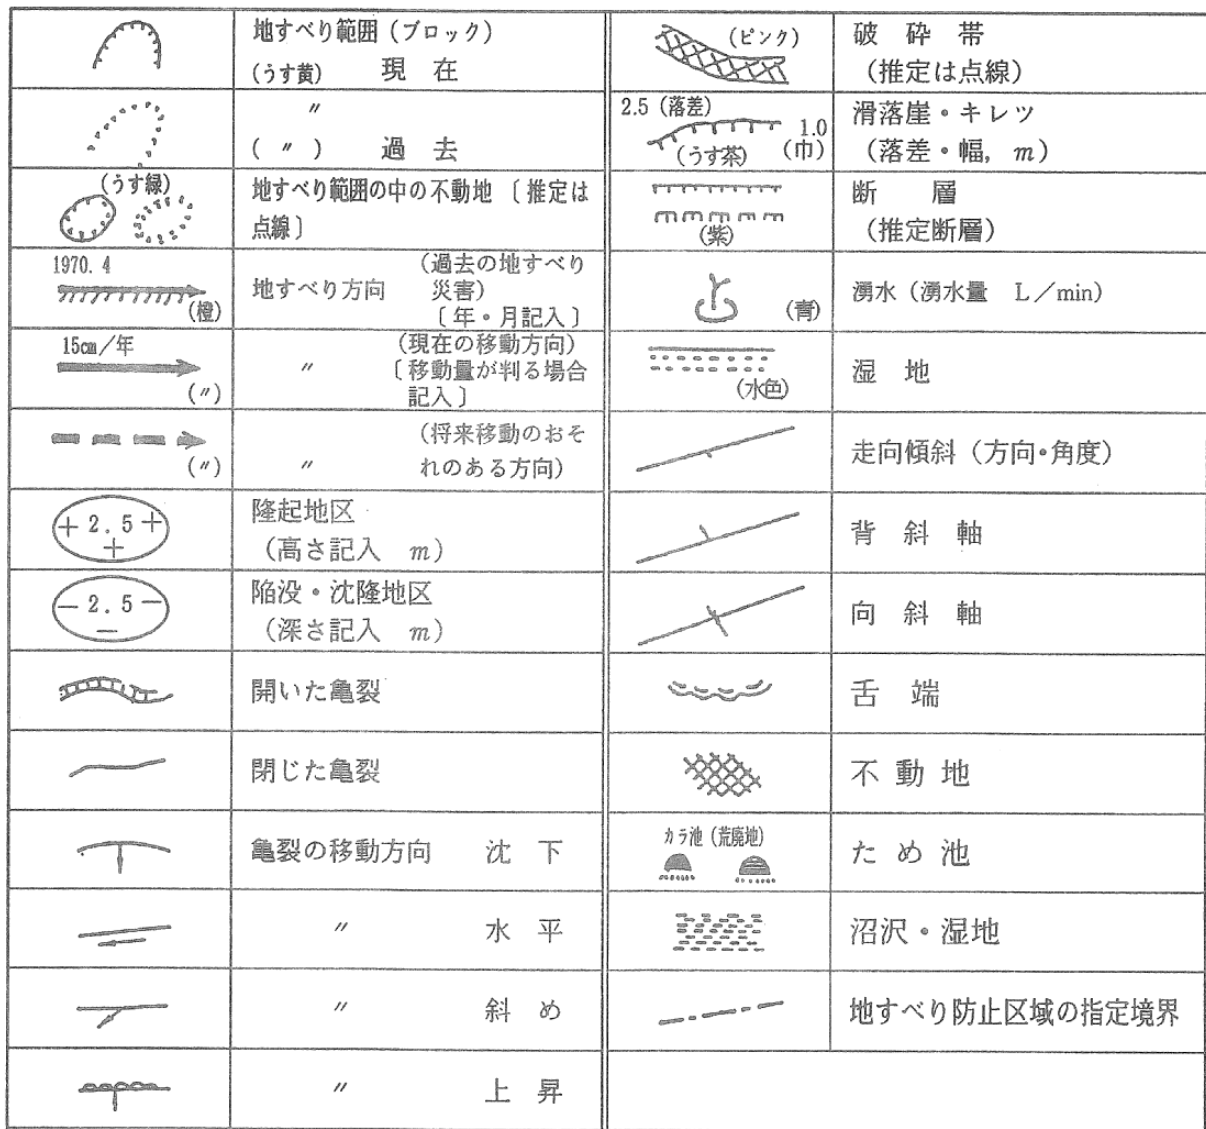 地すべり範囲（ブロック）
(うす黄)　現　在
〃
(　〃　)　過　去
(うす緑)
地すべり範囲の中の不動地〔推定は
点線〕
1970. 4
(橙)
地すべり方向
(過去の地すべり
災害)
〔年・月記入〕
15㎝／年
(〃)
〃
(現在の移動方向)
〔移動量が判る場合
記入〕
(〃)
〃
(将来移動のおそ
れのある方向)
＋ 2．5 ＋
＋
隆起地区
（高さ記入　m）
－ 2．5 －
－
陥没・沈隆地区
（深さ記入　m）
開いた亀裂
閉じた亀裂
亀裂の移動方向　沈　下
〃　水　平
〃　斜　め
〃　上　昇
(ピンク)
破　砕　帯
（推定は点線）
2.5（落差）
1.0
(うす茶)
(巾)
滑落崖・キレツ
（落差・幅，m）
(紫)
断　　層
（推定断層）
(青)
湧水（湧水量　L／min）
(水色)
湿　地
走向傾斜（方向・角度）
背　斜　軸
向　斜　軸
舌　端
不　動　地
カラ池（荒廃地）
た　め　池
沼沢・湿地
地すべり防止区域の指定境界